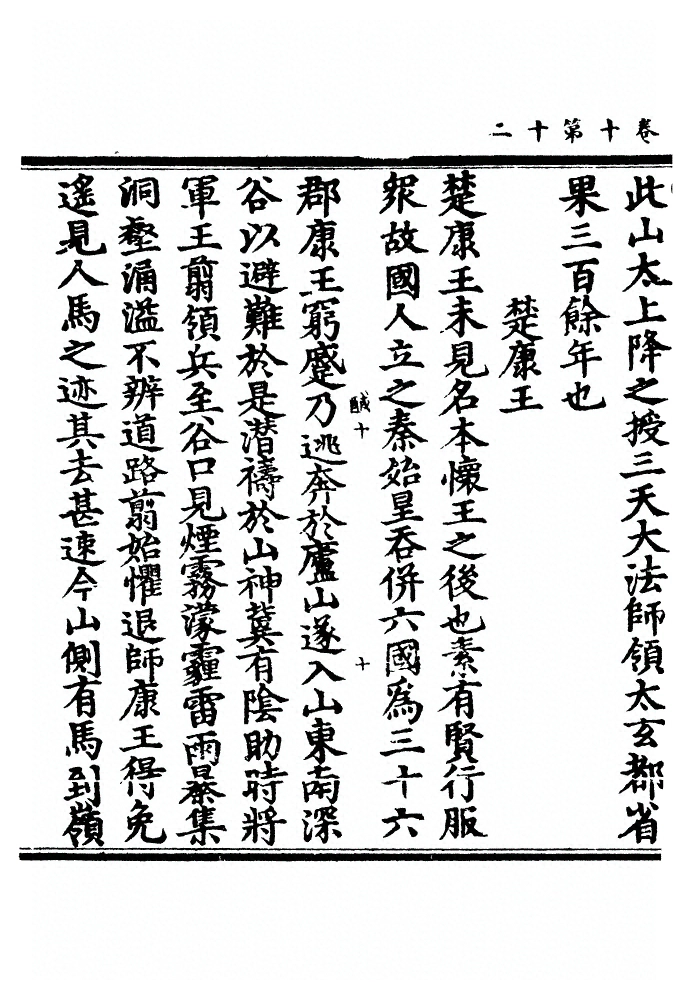 卷十第十二
此山太上降之授三天大法師領太玄都省
果三百餘年也
楚康王
楚康王未見名本懷王之後也素有賢行服
衆故國人立之秦始皇吞併六國為三十六
郡康王窮蹙乃逃奔於廬山遂入山東南深
谷以避難於是潜禱於山神冀有陰助時將
軍王翦領兵至谷口見煙霧濛霾雷雨暴集
洞壑涌溢不辨道路翦始懼退師康王得免
遙見人馬之迹其去甚速今山側有馬到嶺
鹹十
十